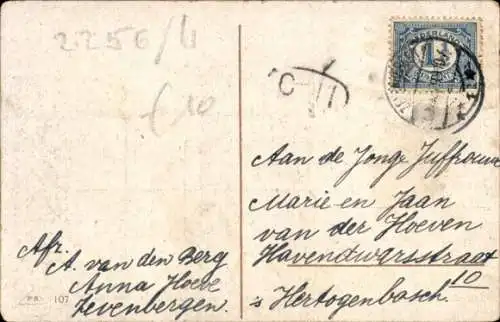 2256/4
£10
NEDERLAND
1
Aan de Jonge Juffrouw
Marie en Jaan
van der Hoeven
Havendwarsstraat
10
's Hertogenbosch.
Afz.
A. van den Berg
Anna Hoeve
Zevenbergen.
107